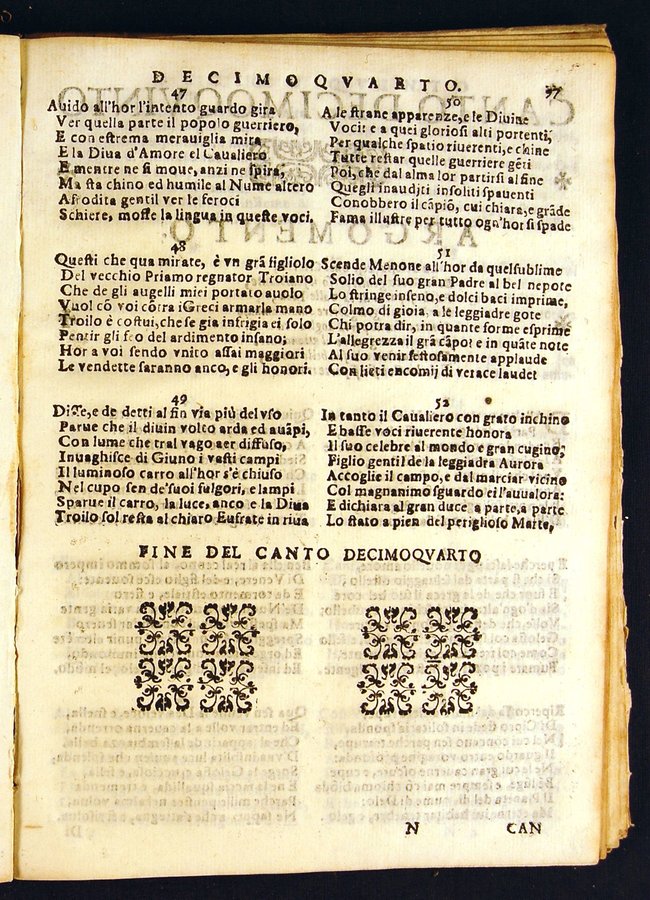 DECIMOQVARTO.
97
47
Auido all'hor l'intento guardo gira
Ver quella parte il popolo guerriero,
E con estrema merauiglia mira
E la Diua d'Amore el Caualiero
E mentre ne si moue, anzi ne spira,
Ma sta chino ed humile al Nume altero
Afrodita gentil ver le feroci
Schiere, mosse la lingua in queste voci.
48
Questi che qua mirate, è vn grā figliolo
Del vecchio Priamo regnator Troiano
Che de gli augelli miei portato auolo
Vuol cō voi cōtra i Greci armarla mano
Troilo è costui, che se gia infrigia ei solo
Pentir gli feo del ardimento insano;
Hor a voi sendo vnito assai maggiori
Le vendette saranno anco, e gli honori.
49
Disse, e de detti al fin via più del vso
Parue che il diuin volto arda ed auāpi,
Con lume che tral vago aer diffuso,
Inuaghisce di Giuno i vasti campi
Il luminoso carro all'hor s'è chiuso
Nel cupo sen de'suoi fulgori, e lampi
Sparue il carro, la luce, anco e la Diua
Troilo sol resta al chiaro Eufrate in riua
50
A le strane apparenze, e le Diuine
Voci: e a quei gloriosi alti portenti,
Per qualche spatio riuerenti, e chine
Tutte restar quelle guerriere gēti
Poi, che dal alma lor partirsi al fine
Quegli inauditi insoliti spauenti
Conobbero il cāpiō, cui chiara, e grāde
Fama illustre per tutto ogn'hor si spade
51
Scende Menone all'hor da quel sublime
Solio del suo gran Padre al bel nepote
Lo stringe inseno, e dolci baci imprime,
Colmo di gioia a le leggiadre gote
Chi potra dir, in quante forme esprime
L'allegrezza il grā cāpo! e in quāte note
Al suo venir festosamente applaude
Con lieti encomij di verace laude!
52
In tanto il Caualiero con grato inchino
E basse voci riuerente honora
Il suo celebre al mondo e gran cugino,
Figlio gentil de la leggiadra Aurora
Accoglie il campo, e dal marciar vicino
Col magnanimo sguardo ei l'auualora:
E dichiara al gran duce a parte, a parte
Lo stato a pien del periglioso Marte,
FINE DEL CANTO DECIMOQVARTO
N
CAN